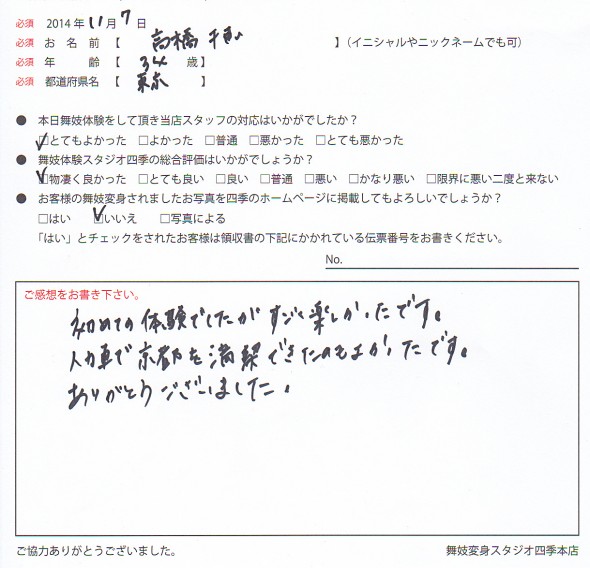 必須 2014年11月7日
必須 お名前【 高橋 】(イニシャルやニックネームでも可)
必須 年齢【 34 歳】
必須 都道府県名【 東京 】
● 本日舞妓体験をして頂き当店スタッフの対応はいかがでしたか?
☑とてもよかった □よかった □普通 □悪かった □とても悪かった
● 舞妓体験スタジオ四季の総合評価はいかがでしょうか?
☑物凄く良かった □とても良い □良い □普通 □悪い □かなり悪い □限界に悪い二度と来ない
● お客様の舞妓変身されましたお写真を四季のホームページに掲載してもよろしいでしょうか?
□はい ☑いいえ □写真による
「はい」とチェックをされたお客様は領収書の下記にかかれている伝票番号をお書きください。
No.
ご感想をお書き下さい。
初めての体験でしたがすごく楽しかったです。
人力車で京都を満喫できたのもよかったです。
ありがとうございました。
ご協力ありがとうございました。 舞妓変身スタジオ四季本店